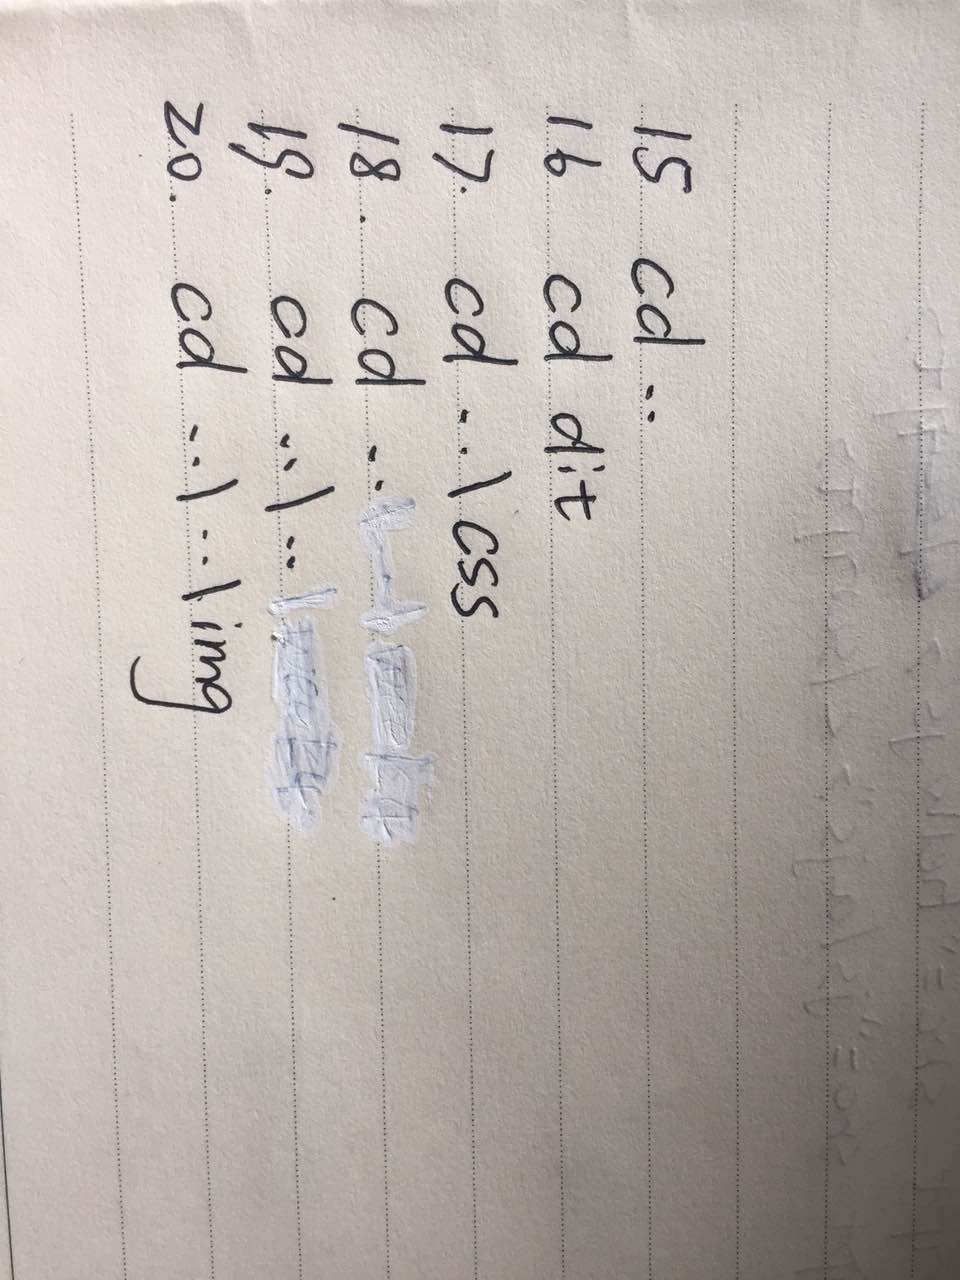 15 cd ..
16 cd dit
17. cd ..\css
18. cd ..
19. cd ..\..
20. cd ..\..\img